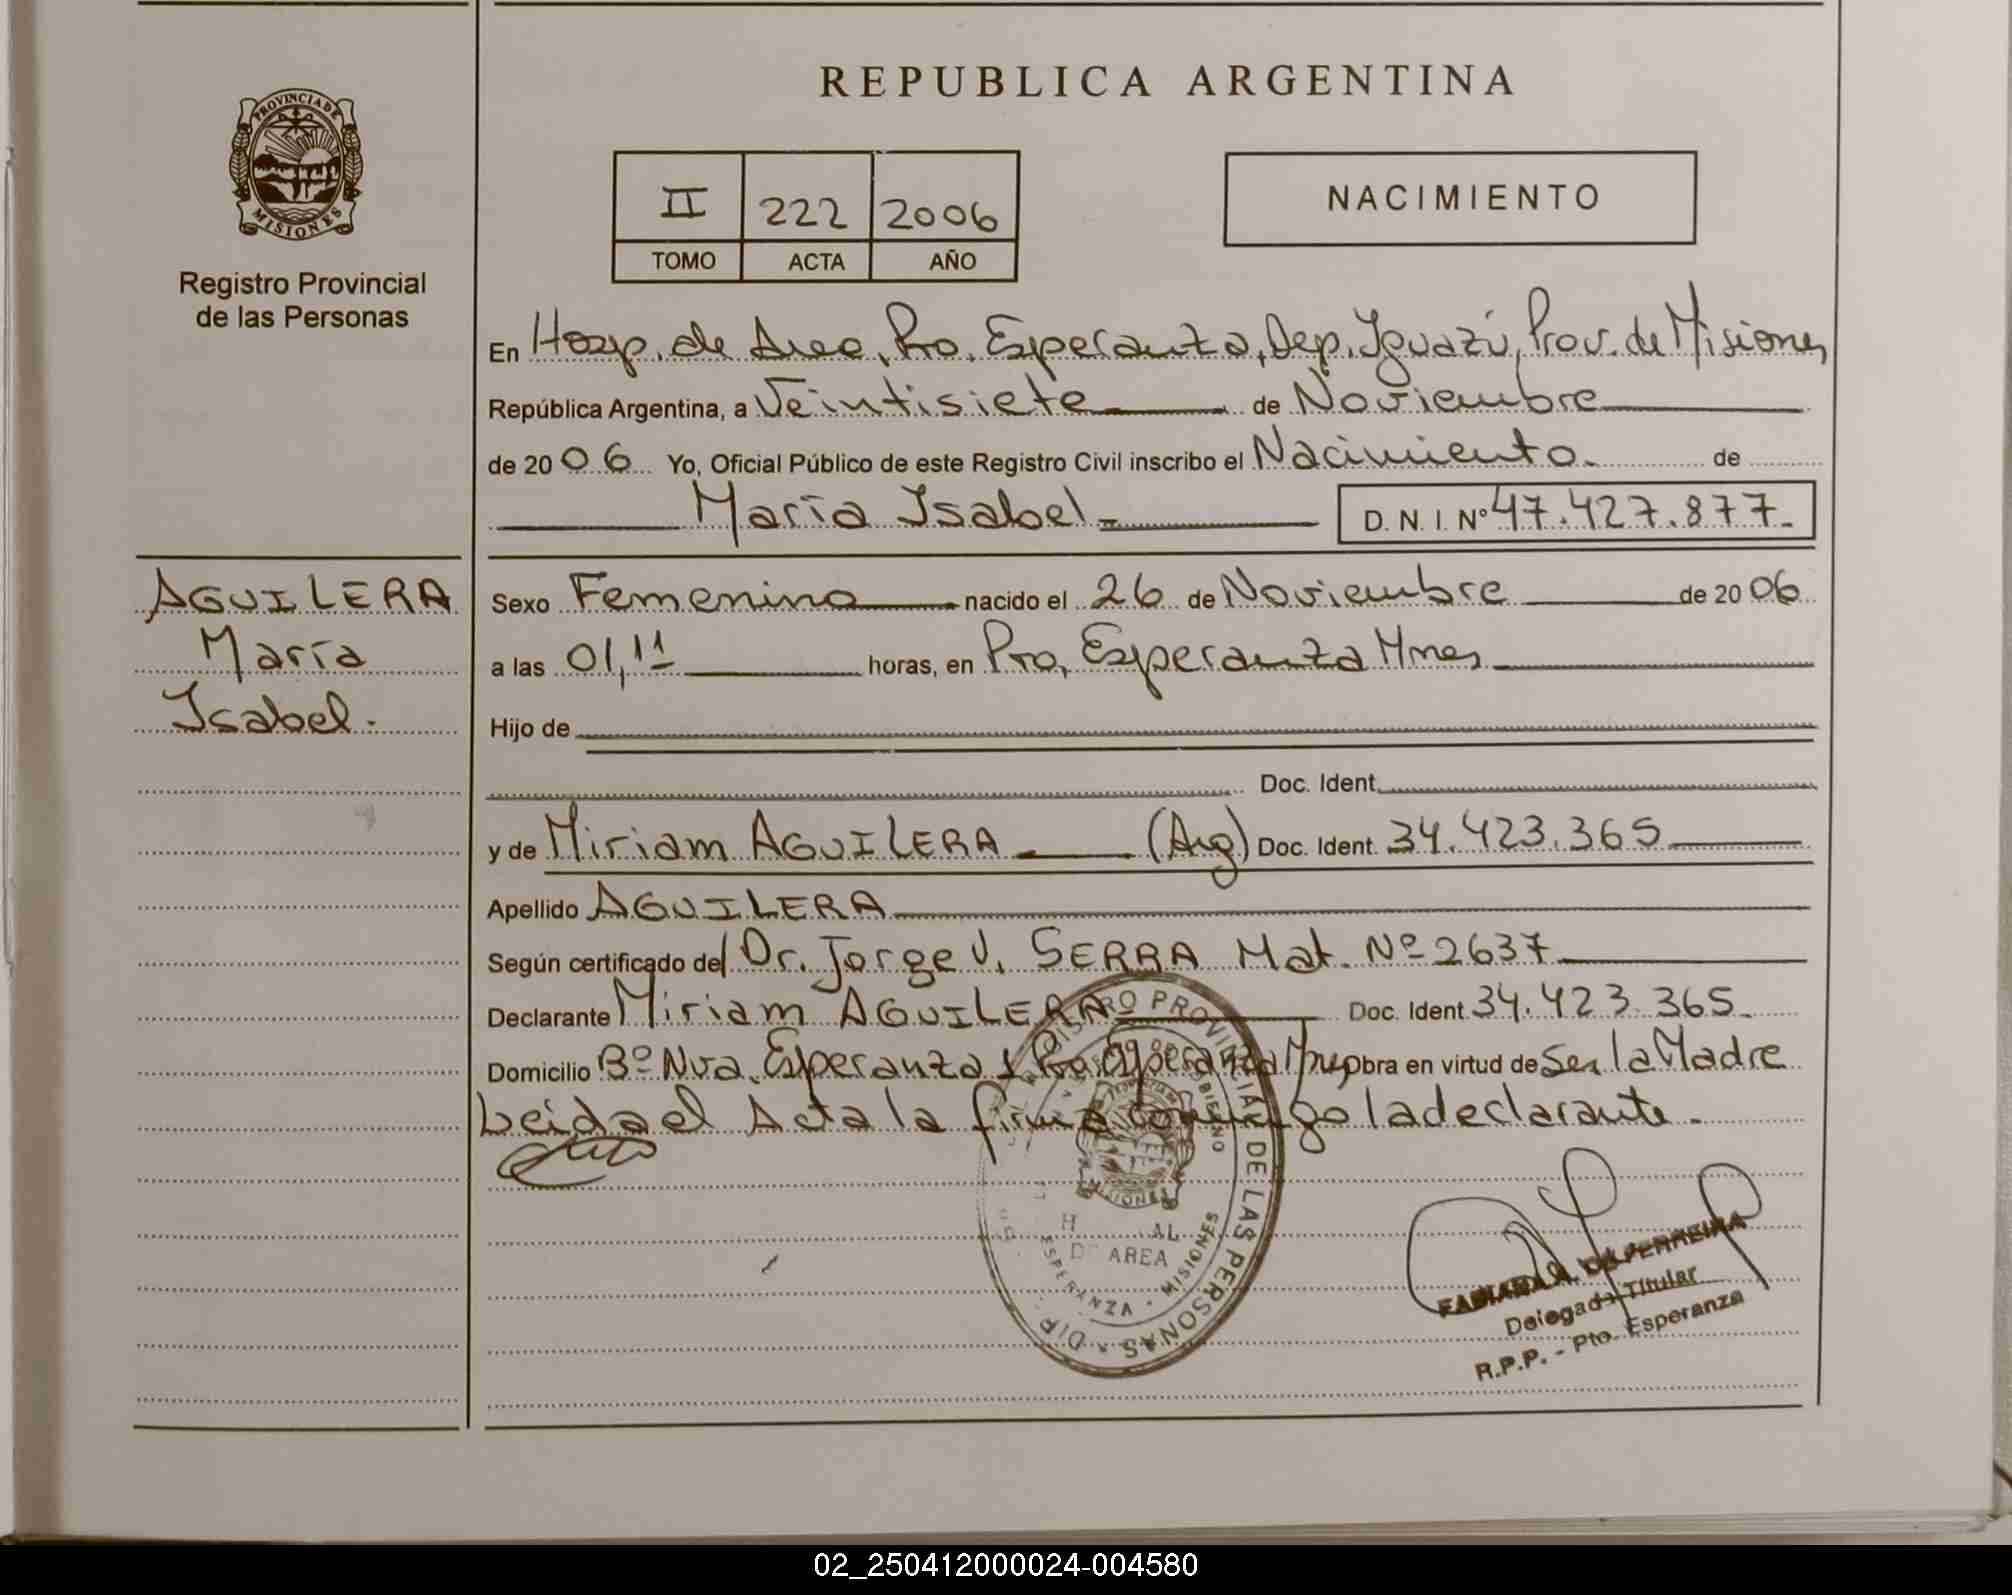 REPUBLICA ARGENTINA
PROVINCIA DE
MISIONES
Registro Provincial
de las Personas
II 222 2006
TOMO ACTA AÑO
NACIMIENTO
En Hosp. de Area, Pto. Esperanza, Dep. Iguazú, Prov. de Misiones
República Argentina, a Veintisiete de Noviembre
de 2006 Yo, Oficial Público de este Registro Civil inscribo el Nacimiento. de
María Isabel.
D. N. I. Nº 47.427.877.
AGUILERA
María
Isabel.
Sexo Femenino nacido el 26 de Noviembre de 2006
a las 01,11 horas, en Pto, Esperanza Mnes
Hijo de
Doc. Ident.
y de Miriam AGUILERA (Arg) Doc. Ident. 34.423.365
Apellido AGUILERA
Según certificado del Dr. Jorge V. SERRA Mat. Nº 2637
Declarante Miriam AGUILERA Doc. Ident. 34.423.365.
Domicilio Bº Nva. Esperanza 1 Pto. Esperanza Obra en virtud de Ser la Madre
Leida el Acta la firma conmigo la declarante.
DE LAS PERSONAS
DE AREA
ESPERANZA - MISIONES
MISIONES
DE FERREIRA
Delegada Titular
R.P.P. - Pto. Esperanza
02_250412000024-004580